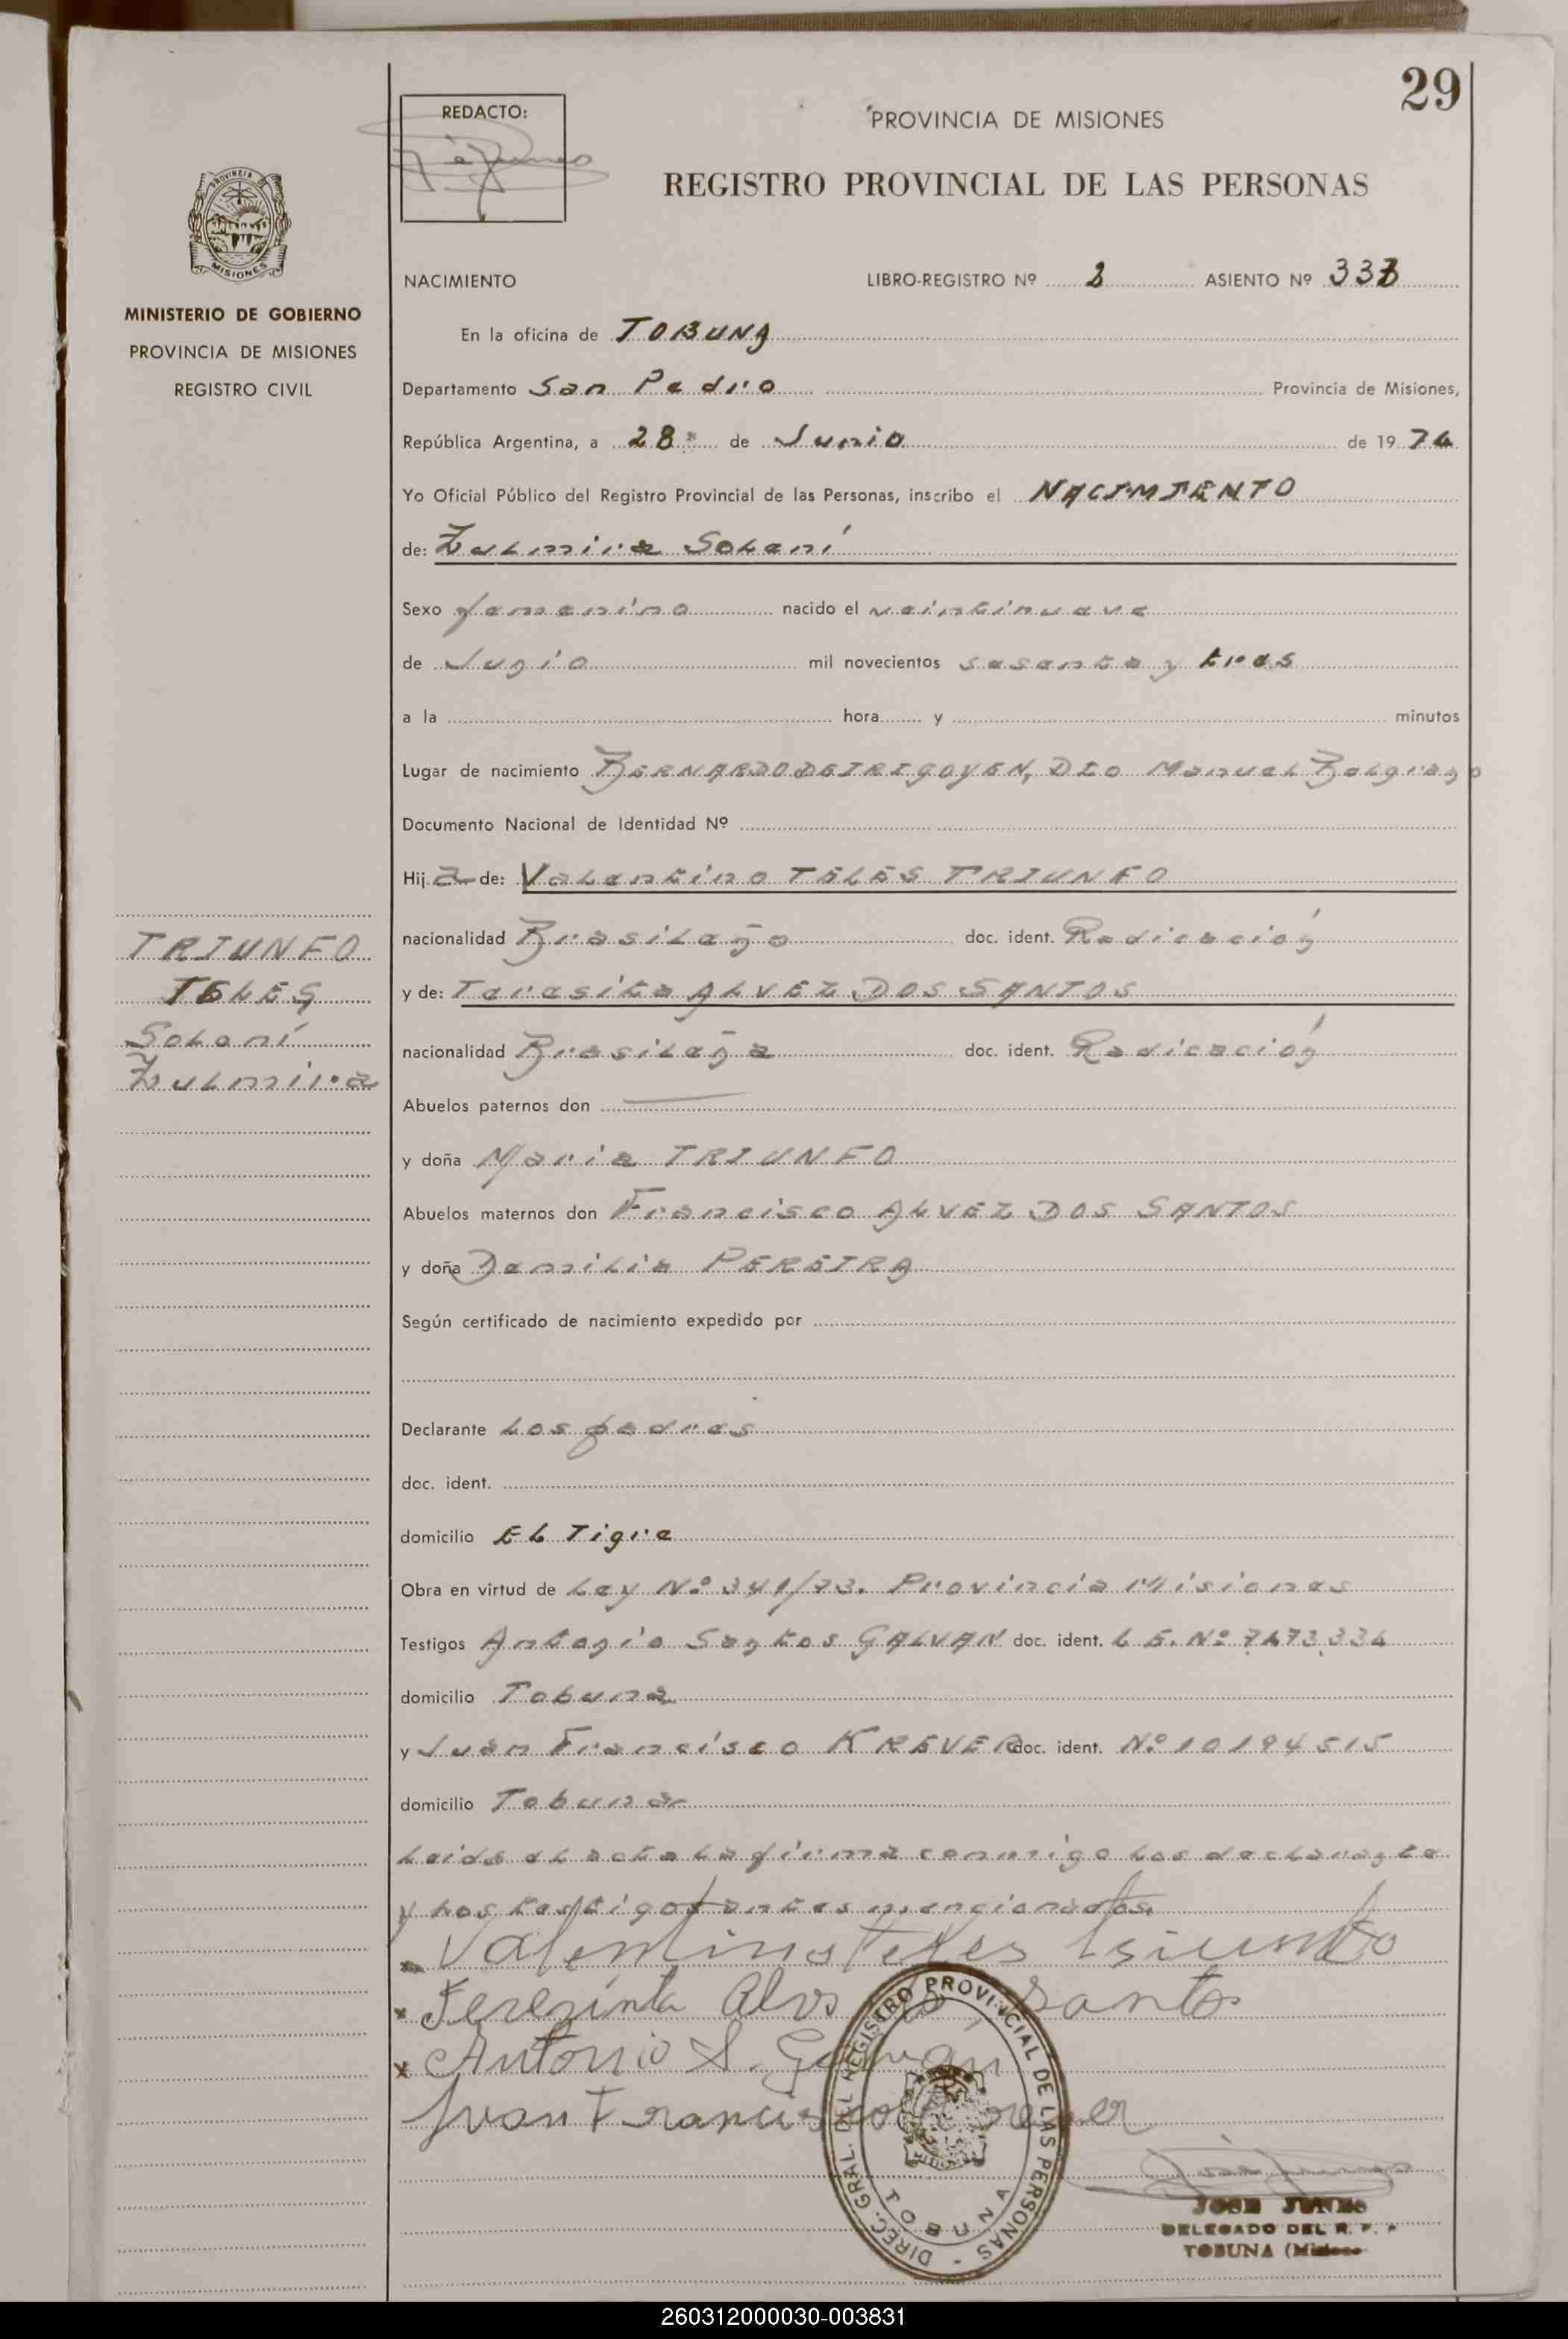 29
REDACTO:
PROVINCIA DE MISIONES
REGISTRO PROVINCIAL DE LAS PERSONAS
PROVINCIA
MISIONES
MINISTERIO DE GOBIERNO
PROVINCIA DE MISIONES
REGISTRO CIVIL
NACIMIENTO LIBRO-REGISTRO Nº 2 ASIENTO Nº
En la oficina de TOBUNA
Departamento San Pedro Provincia de Misiones,
República Argentina, a 28 de Junio de 1974
Yo Oficial Público del Registro Provincial de las Personas, inscribo el NACIMIENTO
de: Zulmira Solaní
Sexo femenino nacido el veintinueve
de Junio mil novecientos sesenta y tres
a la hora y minutos
Lugar de nacimiento BERNARDO DE IRIGOYEN, DTO Manuel Belgrano
Documento Nacional de Identidad Nº
Hija de: Valentino TELES TRIUNFO
nacionalidad Brasileño doc. ident. Radicación
y de: Teresita ALVEZ DOS SANTOS
nacionalidad Brasileña doc. ident. Radicación
TRIUNFO
TELES
Solaní
Zulmira
Abuelos paternos don —
y doña Maria TRIUNFO
Abuelos maternos don Francisco ALVEZ DOS SANTOS
y doña Damilia PEREIRA
Según certificado de nacimiento expedido por
Declarante Los padres
doc. ident.
domicilio El Tigre
Obra en virtud de Ley Nº 341/73. Provincia Misiones
Testigos Antonio Santos GALVAN doc. ident. L E. Nº 7473334
domicilio Tobuna
y Juan Francisco KREVER doc. ident. Nº 10194515
domicilio Tobuna
Leida el acta la firma conmigo los declarante
y los testigos antes mencionados.
Valentino Teles Triunfo
x Terezinta Alves do Santos
x Antonio S. Galván
Juan Francisco Krever
DIREC. GRAL. DEL REGISTRO PROVINCIAL DE LAS PERSONAS - TOBUNA
JOSE JUNES
DELEGADO DEL R. P.
TOBUNA
260312000030-003831